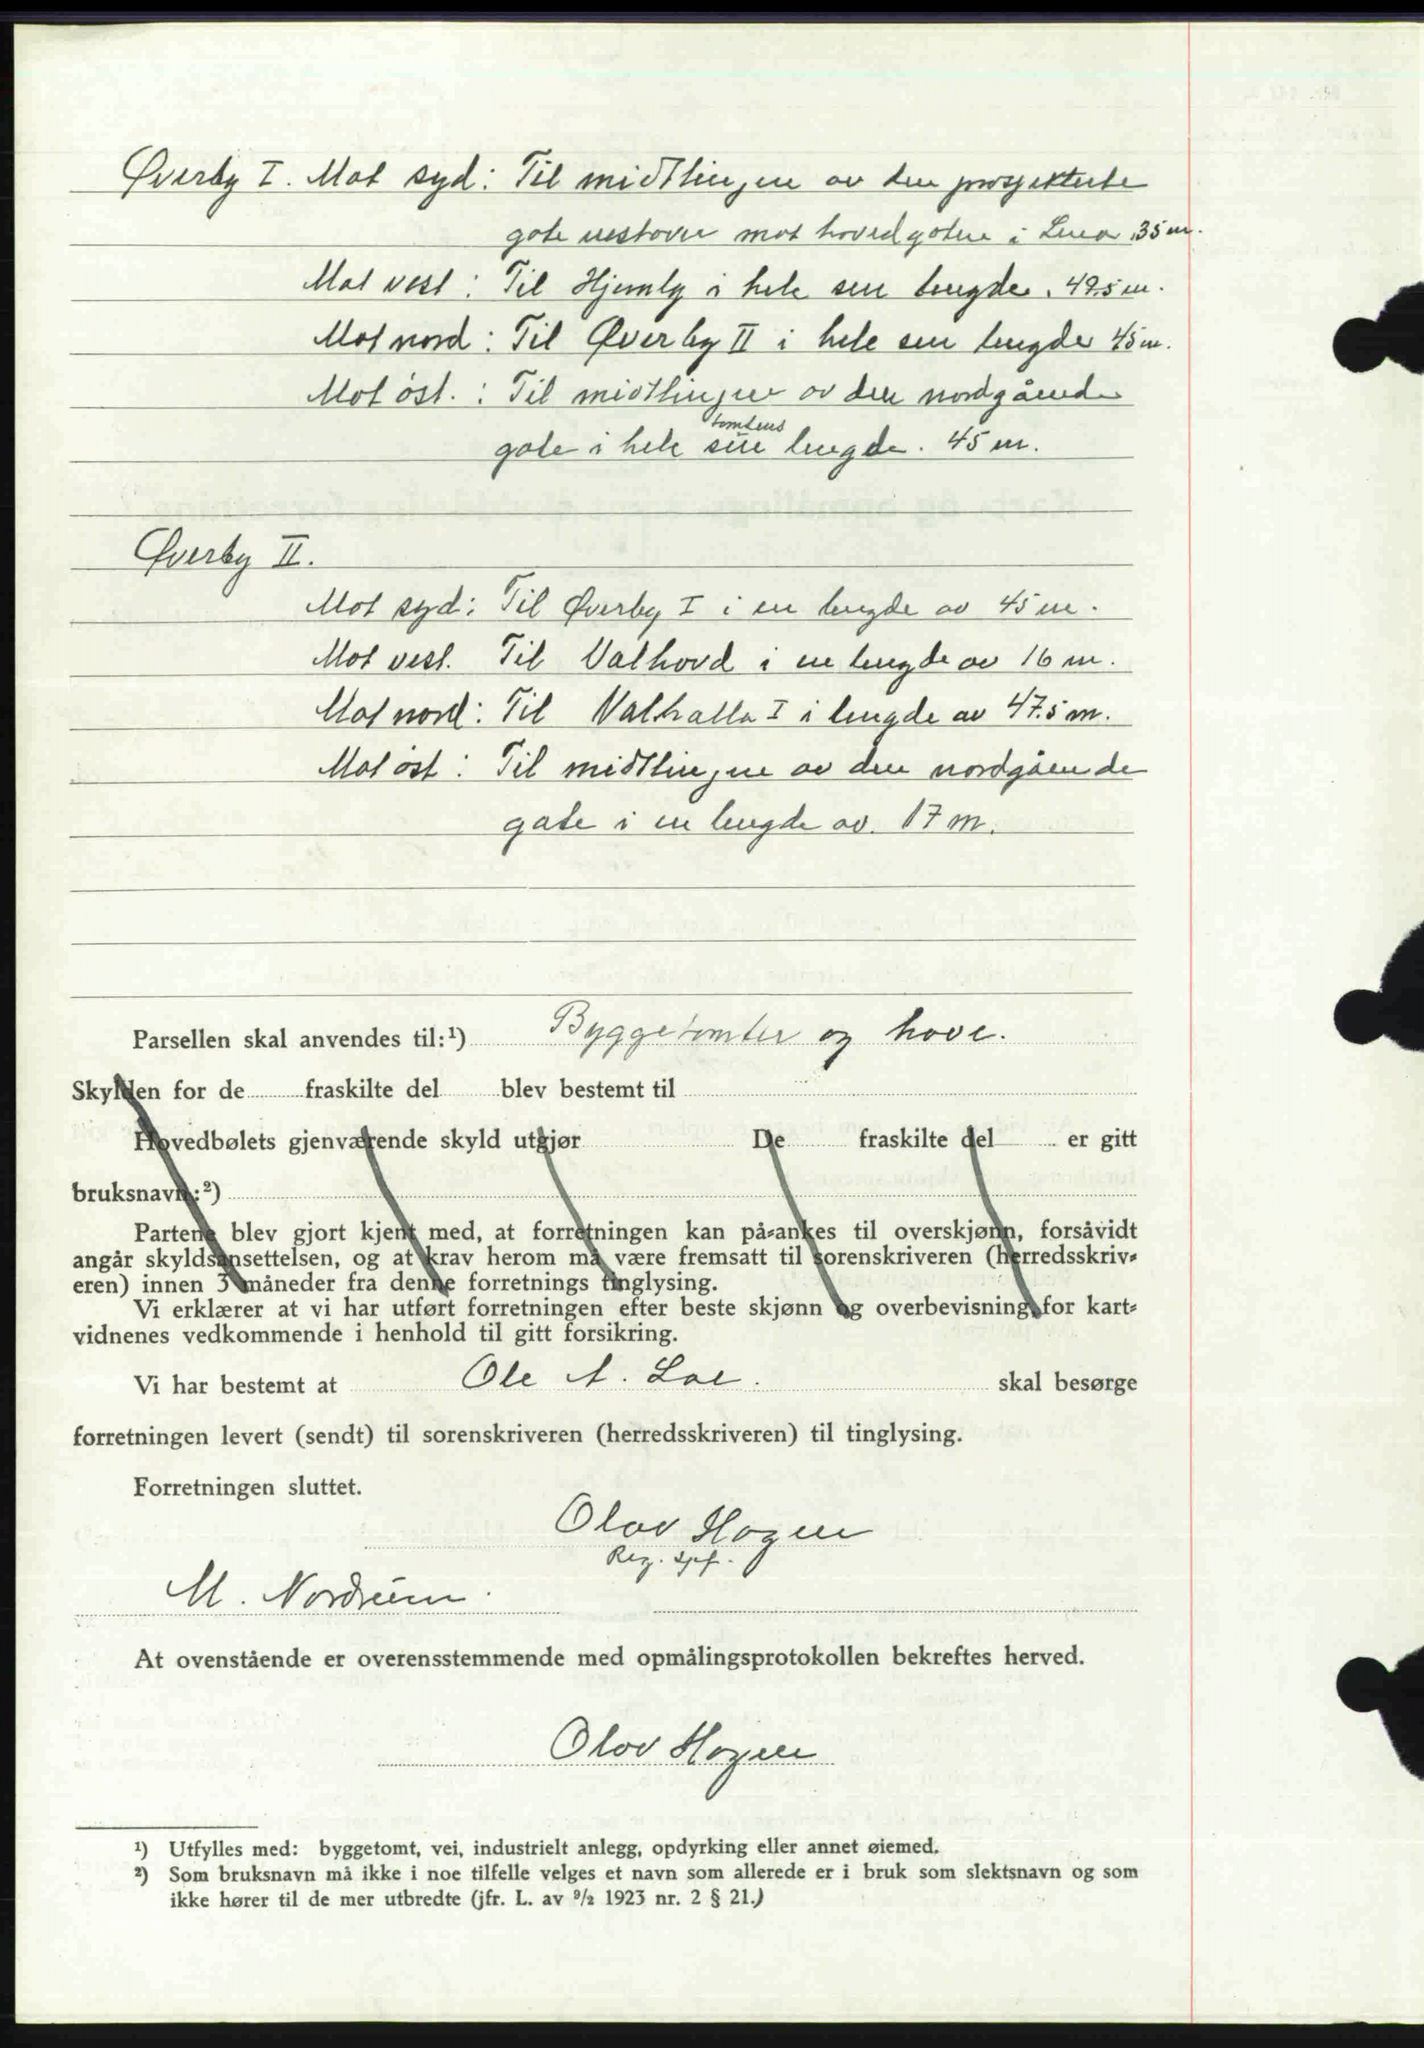 Øverby I. Mot syd: Til midtlinjen av den prosjekterte
gate vestover mot hovedgaten i Lena 35 m.
Mot vest: Til Hjemly i hele sin lengde. 49.5 m.
Mot nord: Til Øverby II i hele sin lengde 45 m.
Mot øst.: Til midtlinjen av den nordgående
tomtens
gate i hele sin lengde. 45 m.
Øverby II.
Mot syd: Til Øverby I i en lengde av 45 m.
Mot vest. Til Valhovd i en lengde av 16 m.
Mot nord: Til Valhalla I i lengde av 47.5 m.
Mot øst: Til midtlinjen av den nordgående
gate i en lengde av. 17 m.
Parsellen skal anvendes til:¹) Byggetomter og have.
Skylden for de fraskilte del blev bestemt til
Hovedbølets gjenværende skyld utgjør De fraskilte del er gitt
bruksnavn:²)
Partene blev gjort kjent med, at forretningen kan på-ankes til overskjønn, forsåvidt
angår skyldsansettelsen, og at krav herom må være fremsatt til sorenskriveren (herredsskriv-
eren) innen 3 måneder fra denne forretnings tinglysing.
Vi erklærer at vi har utført forretningen efter beste skjønn og overbevisning, for kart-
vidnenes vedkommende i henhold til gitt forsikring.
Vi har bestemt at Ole A. Loe. skal besørge
forretningen levert (sendt) til sorenskriveren (herredsskriveren) til tinglysing.
Forretningen sluttet.
Olav Hogen
Reg.
M. Nordrum.
At ovenstående er overensstemmende med opmålingsprotokollen bekreftes herved.
Olav Hogen
¹) Utfylles med: byggetomt, vei, industrielt anlegg, opdyrking eller annet øiemed.
²) Som bruksnavn må ikke i noe tilfelle velges et navn som allerede er i bruk som slektsnavn og som
ikke hører til de mer utbredte (jfr. L. av ⁹/₂ 1923 nr. 2 § 21.)